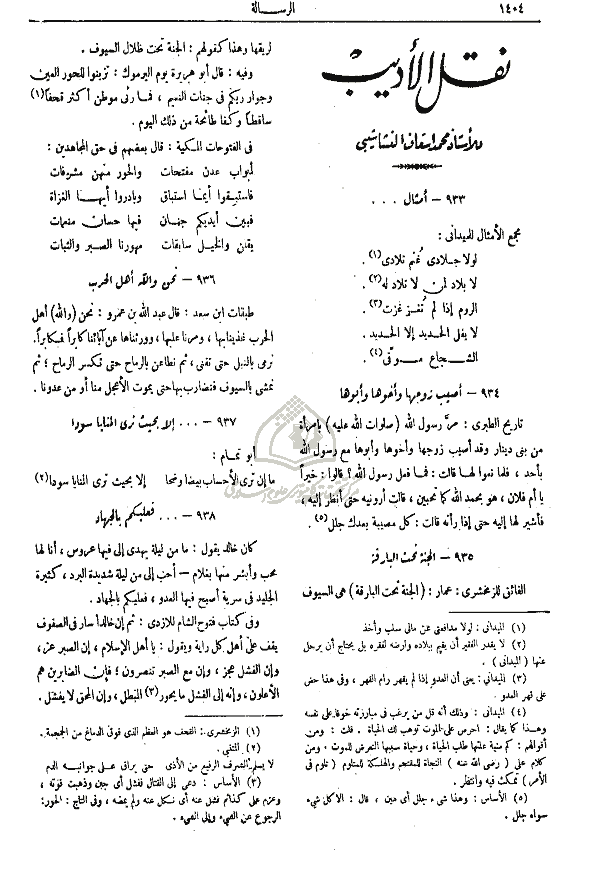 ١٤٠٤
الرسالة
نقل الأديب
للأستاذ محمد إسعاف النشاشيبي
٩٣٣ – أمثال . . .
مجمع الأمثال للميدانى :
لولا جلادى غُنم تلادى (١) .
لا بلاد لمن لا تلاد له (٢) .
الروم إذا لم تُغْز غزت (٣) .
لا يفل الحديد إلا الحديد .
الشجاع موقّى (٤) .
٩٣٤ – أصيب زوجها وأخوها وأبوها
تاريخ الطبرى : مرَّ رسول الله (صلوات الله عليه) بامرأة
من بنى دينار وقد أصيب زوجها وأخوها وأبوها مع رسول الله
بأحد ، فلما نعوا لها قالت : فما فعل رسول الله ؟ قالوا : خيراً
يا أم فلان ، هو بحمد الله كما تحبين ، قالت أرونيه حتى أنظر إليه ،
فأشير لها إليه حتى إذا رأته قالت : كل مصيبة بعدك جلل (٥) .
٩٣٥ – الجنة تحت البارقة
الفائق للزمخشرى : عمار : (الجنة تحت البارقة) هى السيوف
(١) الميدانى : لولا مدافعتى عن مالى سلب وأخذ
(٢) لا يقدر الفقير أن يقيم ببلاده وأرضه لفقره بل يحتاج أن يرحل
عنها (الميدانى) .
(٣) الميدانى : يعنى أن العدو إذا لم يقهر رام القهر ، وفى هذا حض
على قهر العدو .
(٤) الميدانى : وذلك أنه قل من يرغب فى مبارزته خوفا على نفسه
وهذا كما يقال : احرص على الموت توهب لك الحياة . قلت : ومن
أقوالهم : كم منية علتها طلب الحياة ، وحياة سببها التعرض للموت . ومن
كلام على (رضى الله عنه) النجاة للمقتحم والهلكة للمتلوم (تلوم فى
الأمر) تمكث فيه وانتظر .
(٥) الأساس : وهذا شىء جلل أى هين ، قال : ألا كل شىء
سواه جلل .
لبريقها وهذا كقولهم : الجنة تحت ظلال السيوف .
وفيه : قال أبو هريرة يوم اليرموك : تزينوا للحور العين
وجوار ربكم فى جنات النعيم ، فما رئى موطن أكثر قحفاً (١)
ساقطاً وكفا طائحة من ذلك اليوم .
فى الفتوحات المكية : قال بعضهم فى حق المجاهدين :
أبواب عدن مفتحات والحور منهن مشرفات
فاستبقوا أيما استباق وبادروا أيها الغزاة
فبين أيديكم جنان فيها حسان منعمات
يقلن والخيل سابقات مهورنا الصبر والثبات
٩٣٦ – نحن والله أهل الحرب
طبقات ابن سعد : قال عبد الله بن عمرو : نحن (والله) أهل
الحرب غذينا بها ، ومرنا عليها ، وورثناها عن آبائنا كابراً فكابراً .
نرمى بالنبل حتى تفنى ، ثم نطاعن بالرماح حتى تكسر الرماح ؛ ثم
نمشى بالسيوف فنضارب بها حتى يموت الأعجل منا أو من عدونا .
٩٣٧ – . . . إلا بحيث ترى المنايا سودا
أبو تمام :
ما إن ترى الأحساب بيضا وضحا إلا بحيث ترى المنايا سودا (٢)
٩٣٨ – . . . فعليكم بالجهاد
كان خالد يقول : ما من ليلة يهدى إلى فيها عروس ، أنا لها
محب وأبشر منها بغلام – أحب إلى من ليلة شديدة البرد ، كثيرة
الجليد فى سرية أصبح فيها العدو ، فعليكم بالجهاد .
وفى كتاب فتوح الشام للازدى : ثم إن خالداً سار فى الصفوف
يقف على أهل كل راية ويقول : يا أهل الإسلام ، إن الصبر عز ،
وإن الفشل عجز ، وإن مع الصبر تنصرون ؛ فإن الصابرين هم
الأعلون ، وإنه إلى الفشل ما يحور (٣) المبطل ، وإن المحق لا يفشل .
(١) الزمخشرى : القحف هو العظم الذى فوق الدماغ من الجمجمة .
(٢) المتنبى .
لا يسلم الشرف الرفيع من الأذى حتى يراق على جوانبه الدم
(٣) الأساس : دعى إلى القتال ففشل أى جبن وذهبت قوته ،
وعزم على كذا ثم فشل عنه أى نكل عنه ولم يمضه ، وفى التاج : الحور :
الرجوع عن الشىء وإلى الشىء .